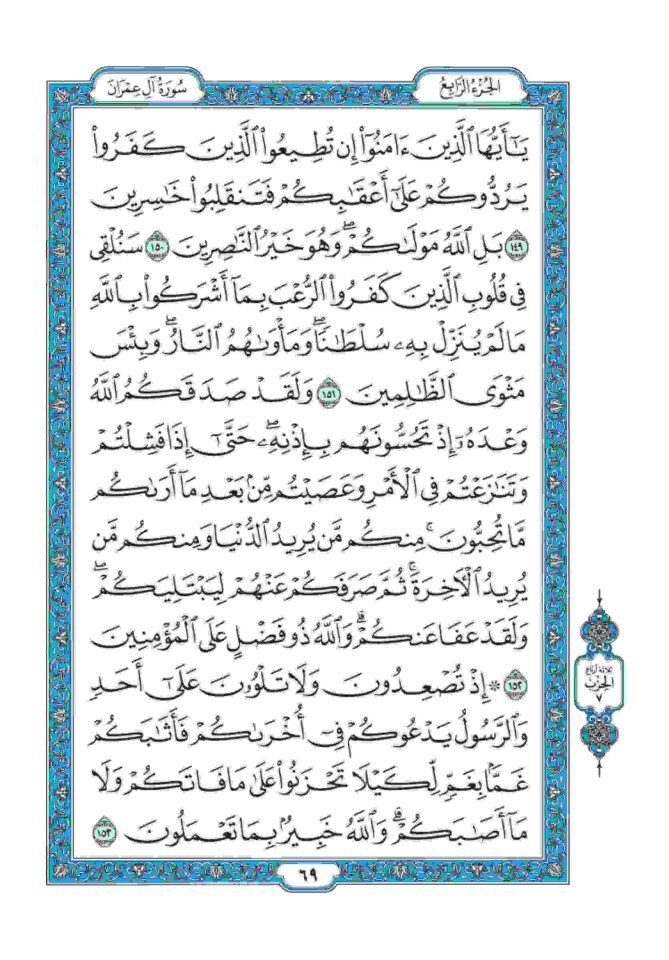 سُورَةُ آلِ عِمْرَانَ
الجُزْءُ الرَّابِعُ
يَٰٓأَيُّهَا ٱلَّذِينَ ءَامَنُوٓا۟ إِن تُطِيعُوا۟ ٱلَّذِينَ كَفَرُوا۟
يَرُدُّوكُمْ عَلَىٰٓ أَعْقَٰبِكُمْ فَتَنقَلِبُوا۟ خَٰسِرِينَ
١٤٩ بَلِ ٱللَّهُ مَوْلَىٰكُمْ ۖ وَهُوَ خَيْرُ ٱلنَّٰصِرِينَ ١٥٠ سَنُلْقِى
فِى قُلُوبِ ٱلَّذِينَ كَفَرُوا۟ ٱلرُّعْبَ بِمَآ أَشْرَكُوا۟ بِٱللَّهِ
مَا لَمْ يُنَزِّلْ بِهِۦ سُلْطَٰنًا ۖ وَمَأْوَىٰهُمُ ٱلنَّارُ ۖ وَبِئْسَ
مَثْوَى ٱلظَّٰلِمِينَ ١٥١ وَلَقَدْ صَدَقَكُمُ ٱللَّهُ
وَعْدَهُۥٓ إِذْ تَحُسُّونَهُم بِإِذْنِهِۦ ۖ حَتَّىٰٓ إِذَا فَشِلْتُمْ
وَتَنَٰزَعْتُمْ فِى ٱلْأَمْرِ وَعَصَيْتُم مِّنۢ بَعْدِ مَآ أَرَىٰكُم
مَّا تُحِبُّونَ ۚ مِنكُم مَّن يُرِيدُ ٱلدُّنْيَا وَمِنكُم مَّن
يُرِيدُ ٱلْءَاخِرَةَ ۚ ثُمَّ صَرَفَكُمْ عَنْهُمْ لِيَبْتَلِيَكُمْ ۖ
وَلَقَدْ عَفَا عَنكُمْ ۗ وَٱللَّهُ ذُو فَضْلٍ عَلَى ٱلْمُؤْمِنِينَ
١٥٢ ۞ إِذْ تُصْعِدُونَ وَلَا تَلْوُۥنَ عَلَىٰٓ أَحَدٍ
وَٱلرَّسُولُ يَدْعُوكُمْ فِىٓ أُخْرَىٰكُمْ فَأَثَٰبَكُمْ
غَمًّۢا بِغَمٍّ لِّكَيْلَا تَحْزَنُوا۟ عَلَىٰ مَا فَاتَكُمْ وَلَا
مَآ أَصَٰبَكُمْ ۗ وَٱللَّهُ خَبِيرٌۢ بِمَا تَعْمَلُونَ ١٥٣
ثلاثة أرباع
الحزب
٧
٦٩